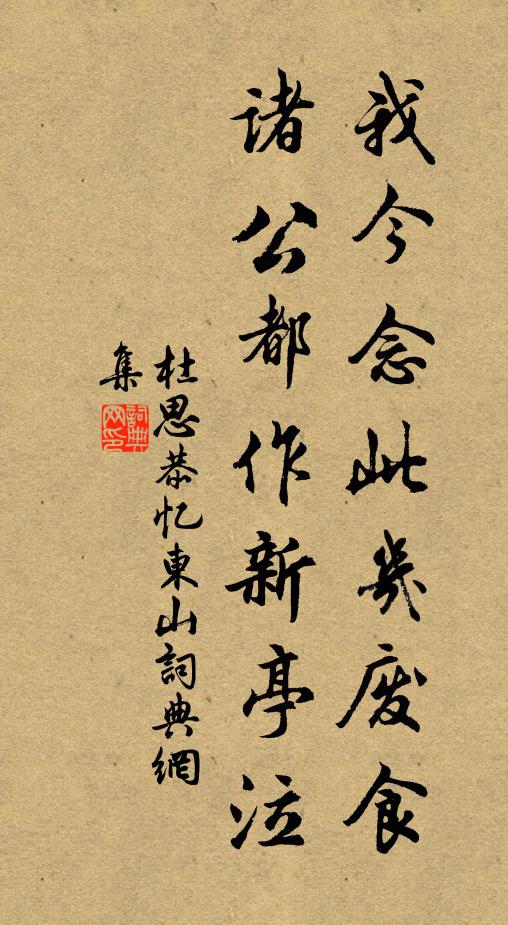 我今念此幾废食
诸公都作新亭泣
杜思恭忆東山詞典網
集
詞典
网印